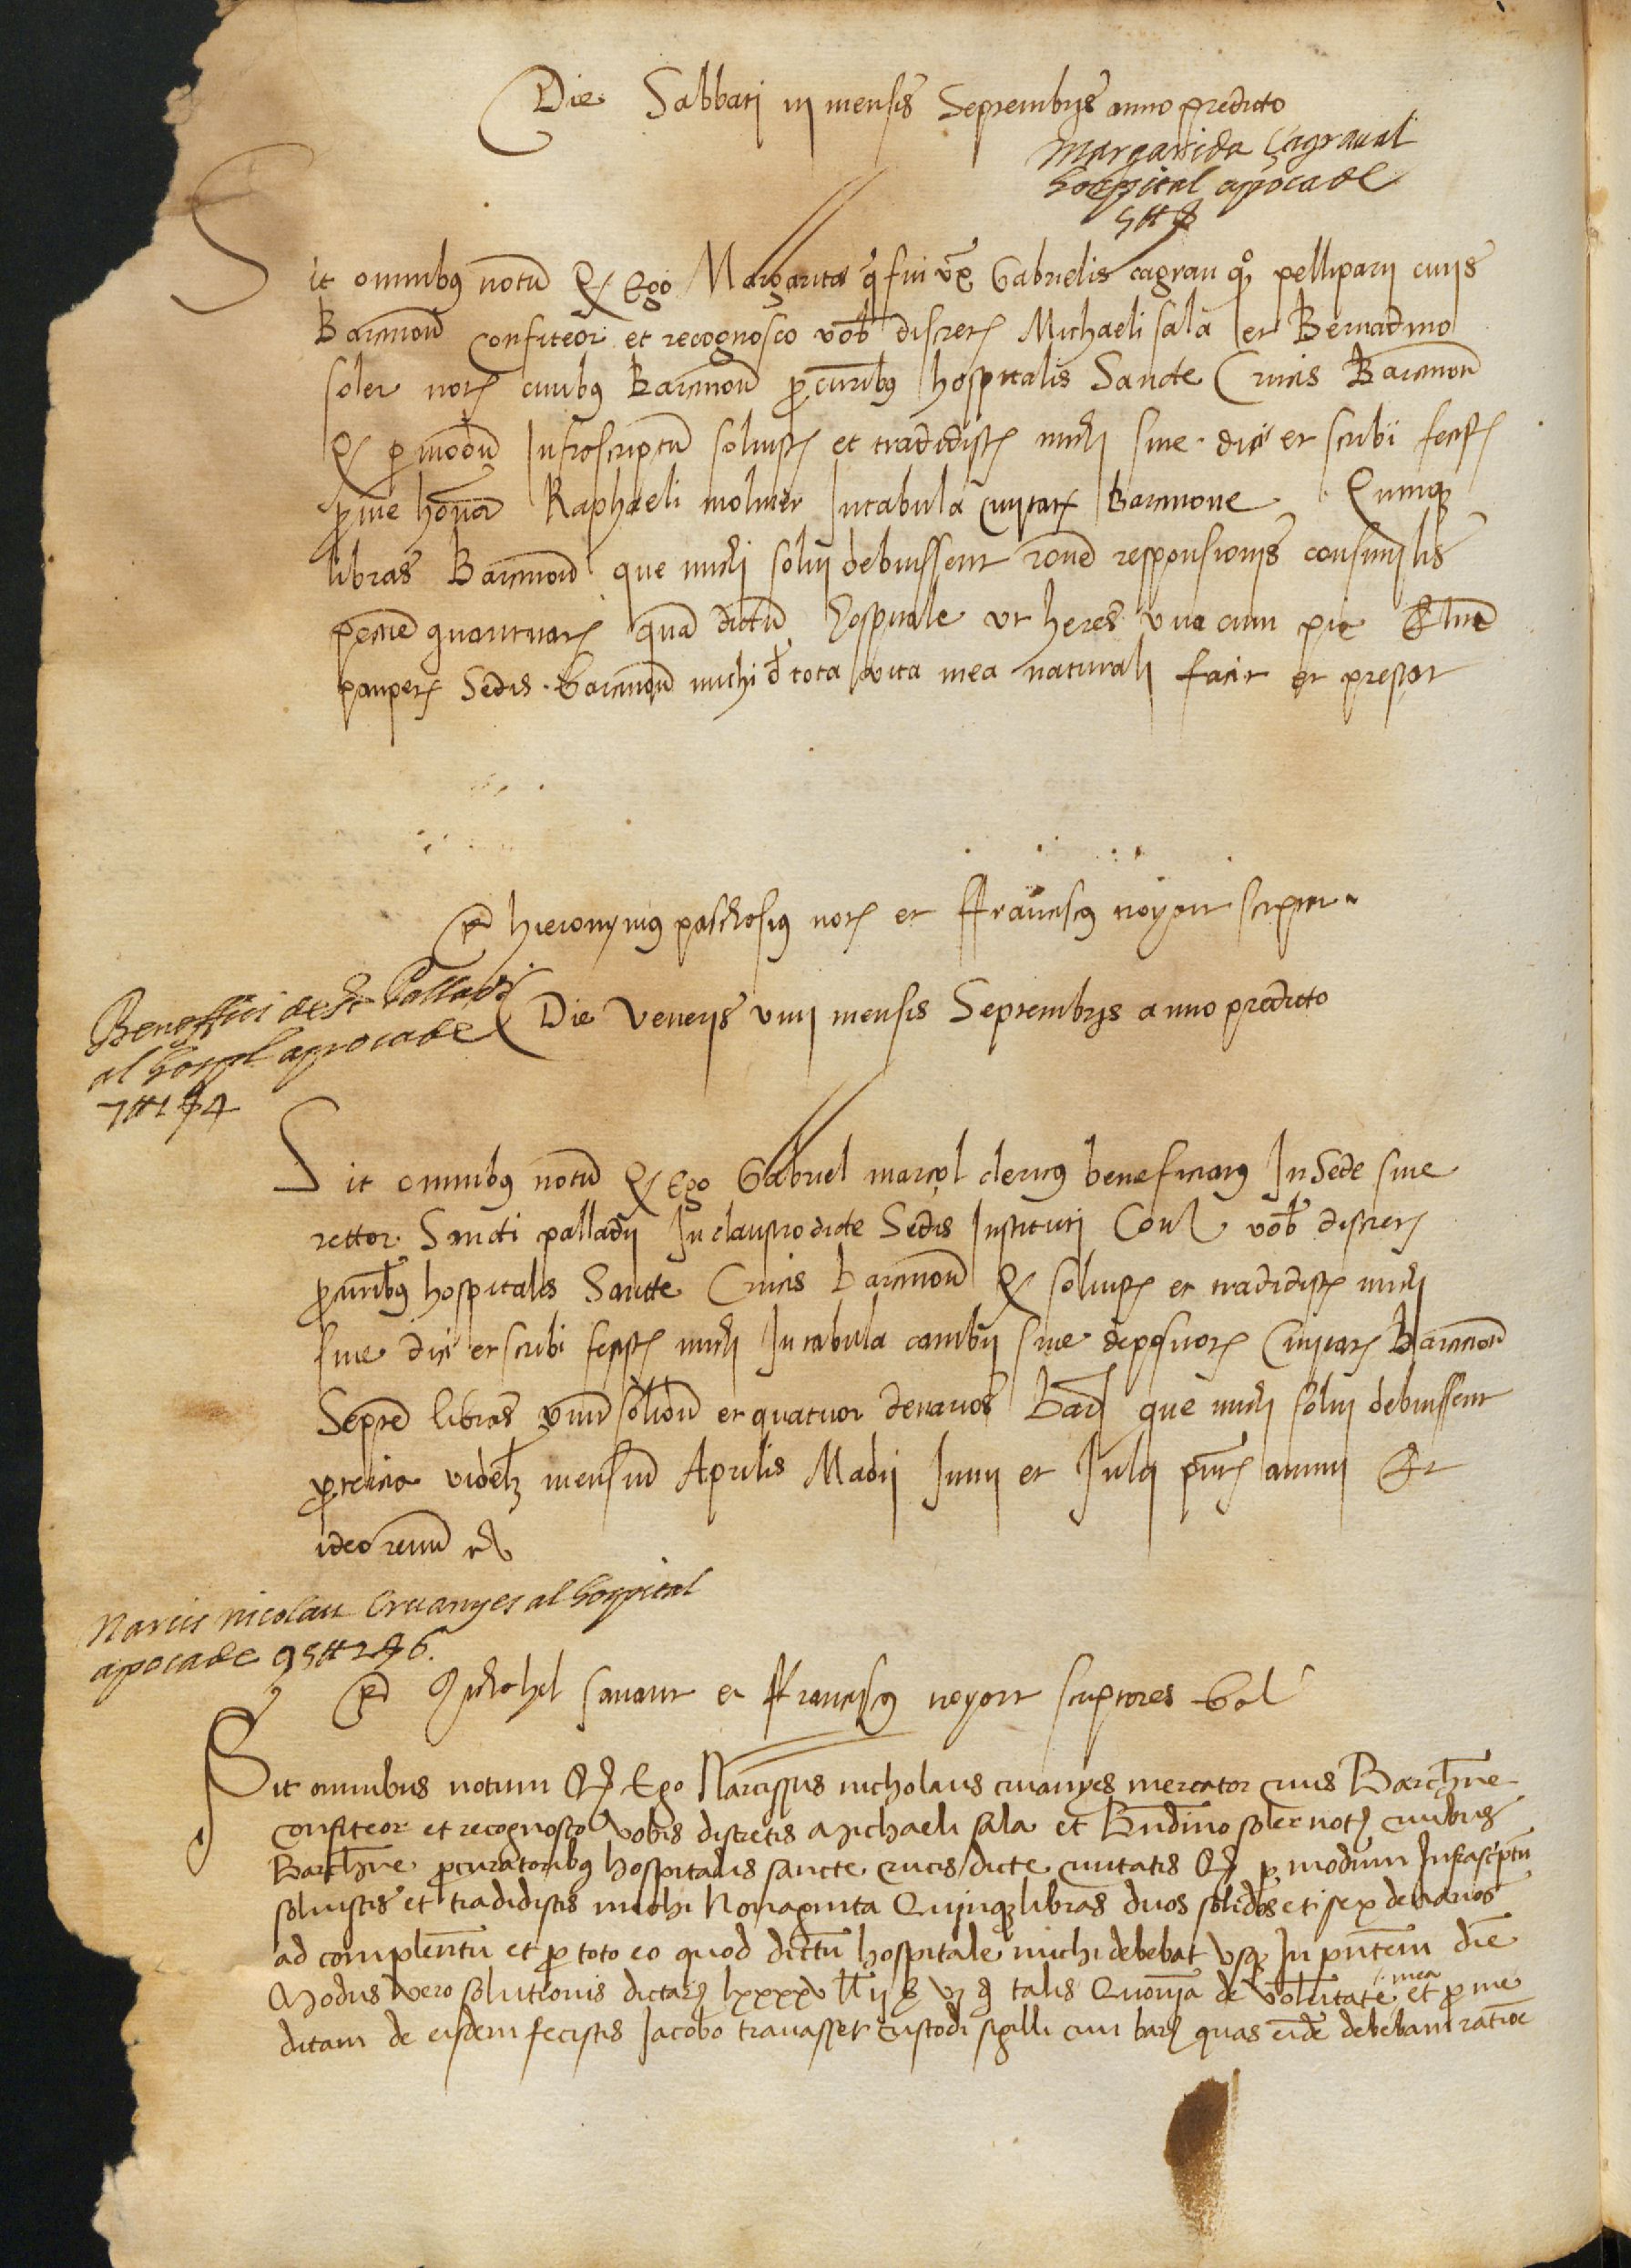 Die Sabbati iij mensis Septembris anno predicto
Margarida çagrau al
hospital apoca de
5 ll s
Sit omnibus notũ Qd Ego Margarita q̃ fui vx̃ Gabrielis çagrau qº pelliparij civis
Barcinoñ confiteor et recognosco vob discret Michaeli sala et Bernadino
soler not civibus Barcinoñ procuribus hospitalis Sancte Crucis Barcinoñ
Qd p modũ Infrascriptũ solvist et tradidist michi sive dici et scribi fecist
p me honor Raphaeli moliner In tabula civitat Barcinone Quinq
libras Barcinoñ que michi solvi debuissent roñe responsionis consimilis
quam dictũ hospitale ut heres una cum pia Elinẽ
pauper Sedis barcinoñ michi d tota vita mea naturali facit et prestat
hieronymus paschosius not et ffrañciscus noyort scriptor
Beneffici de St Palladi
al hospl apoca de
7 ll 1 s 4
Die Veneris viiij mensis Septembris anno predicto
Sit omnibus notũ Qd Ego Gabriel marçol clericus beneficiatus In Sede sive
rettor Sancti palladij In claustro dicte Sedis Instituti Conf vob discret
procuribus hospitalis Sancte Crucis barcinoñ Qd solvist et tradidist michi
sive dici et scribi fecist michi In tabula cambij sive depositor Civitat Barcinoñ
Septẽ libras unũ solidũ et quatuor denarios Barč que michi solvi debuissent
p tercia videlz mensiũ Aprilis Madij Junij et Julij pñt anni Et
ideo renũ
Narcis nicolau Cruanyes al hospital
apoca de 95 ll 2 s 6
savant et ffranciscus noyort scriptores
Sit omnibus notum Qd Ego Narcissus nicholaus cruanyes mercator civis Barchne
confiteor et recognosco vobis discretis Michaeli sala et Bñdino soler not civibus
Barchne procuratoribus hospitalis sancte crucis dicte civitatis Qd p modum Infrascptũ
solvistis et tradidistis michi Nonaginta Quinq libras duos solidos et sex denarios
ad complentũ et p toto eo quod dictũ hospitale michi debebat usq In pñtem diẽ
Modus vero solutionis dictar lxxxxv ll ij s vj d talis Quoniã de voluntate mea et p me
ditam de eisdem fecistis Jacobo travasset custodi sigilli civi barč quas eidẽ debebam ratioẽ